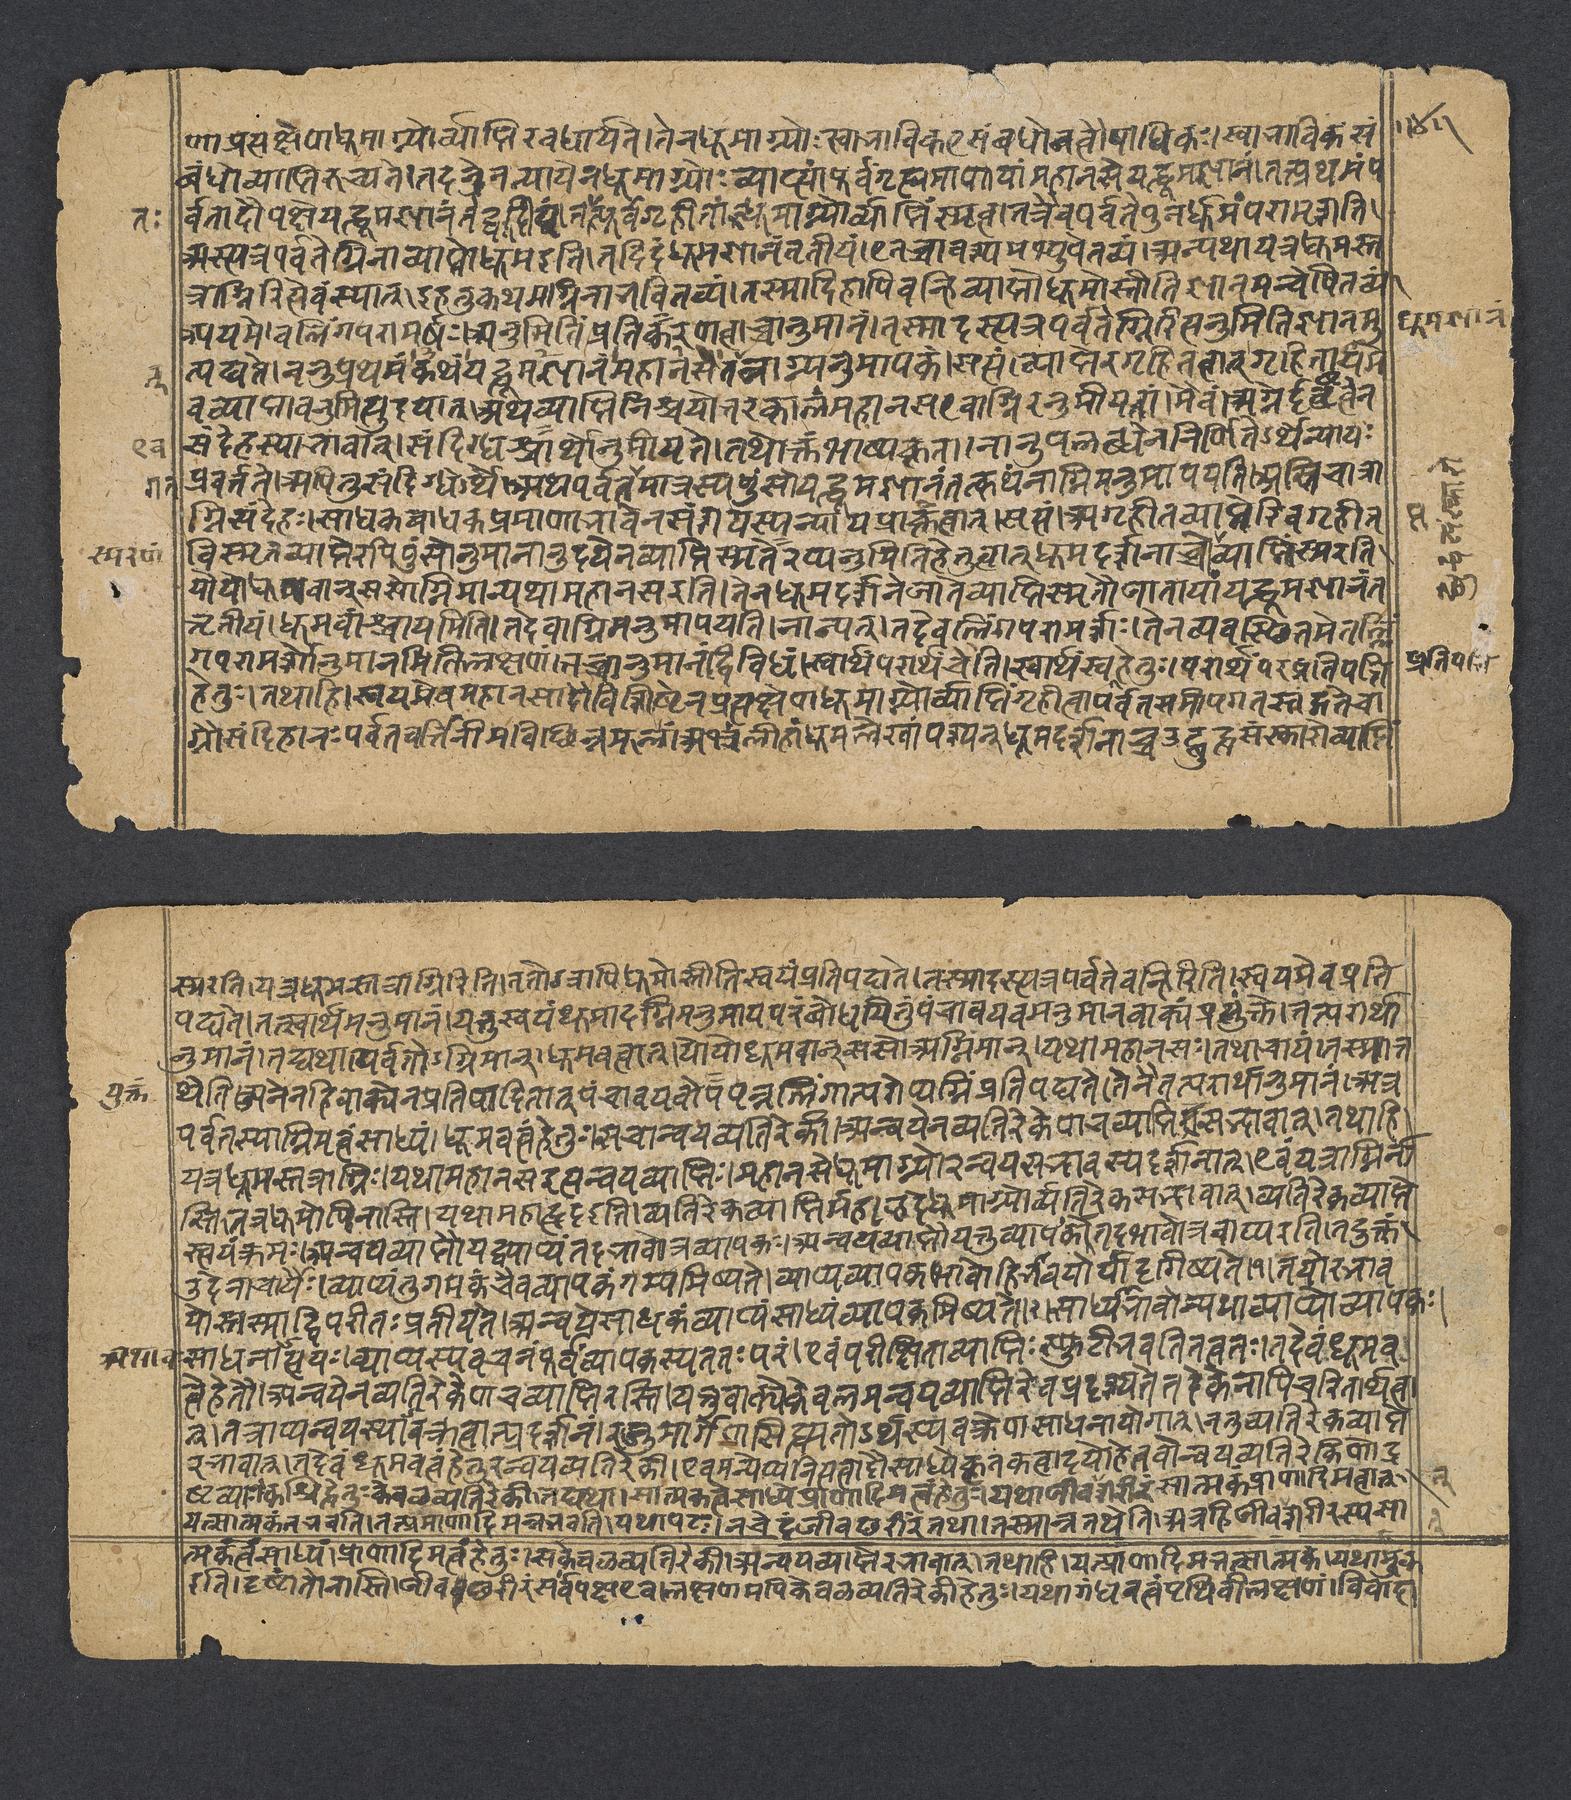 णाप्रत्यक्षेणधूमाग्न्योर्व्याप्तिरवधार्यते।तेनधूमाग्न्योःस्वाभाविकएवसंबंधोनत्वौपाधिकः।स्वाभाविकश्चसं
बंधोव्याप्तिरुच्यते।तदनेनन्यायेनधूमाग्न्योःव्याप्त्यांपूर्वंगृह्यमाणायांमहानसेयद्धूमज्ञानं।तत्प्रथमंप
र्वतादौपक्षेयद्धूमज्ञानंतद्द्वितीयंततःपूर्वगृहीतांधूमाग्न्योर्व्याप्तिंस्मृत्वातत्रैवपर्वतेपुनर्धूमंपरामृशति।
अस्त्यत्रपर्वतेग्निनाव्याप्तोधूमइति।तदिदंधूमज्ञानंतृतीयं।एतच्चावश्यमभ्युपेतव्यं।अन्यथायत्रधूमस्त
त्राग्निरित्येवंस्यात्।इहतुकथमग्निनाभवितव्यं।तस्मादिहापिवन्हिव्याप्तोधूमोस्तीतिज्ञानमन्वेषितव्यं
अयमेवलिंगपरामर्षः।अनुमितिंप्रतिकरणत्वाच्चानुमानं।तस्मादस्त्यत्रपर्वतेग्निरित्यनुमितिज्ञानमु
त्पद्यते।ननुप्रथमंकथंयद्धूमज्ञानंमहानसेतन्नाग्न्यनुमापकं।सत्यं।व्याप्तेरगृहीतत्वात्गृहीतायामे
वव्याप्तावनुमित्युदयात्।अथव्याप्तिनिश्चयोत्तरकालंमहानसएवाग्निरनुमीयतां।मैवं।अग्नेर्दृष्टत्वेन
संदेहस्याभावात्।संदिग्धश्चार्थोनुमीयते।तथोक्तंभाष्यकृता।नानुपलब्धेननिर्णीतेऽर्थेन्यायः
प्रवर्तते।अपितुसंदिग्धेऽर्थे।अथपर्वतमात्रस्यपुंसोयद्धूमज्ञानंतत्कथंनाग्निमनुमापयति।अस्तिचात्रा
ग्निसंदेहः।साधकबाधकप्रमाणाभावेनसंशयस्यन्यायप्राप्तत्वात्।सत्यं।अगृहीतव्याप्तेरिवगृहीत
विस्मृतव्याप्तेरपिपुंसोनुमानानुदयेनव्याप्तिस्मृतेरप्यनुमितिहेतुत्वात्धूमदर्शनाच्चोव्याप्तिंस्मरति
योयोधूमवान्ससोग्निमान्यथामहानसइति।तेनधूमदर्शनेजातेव्याप्तिस्मृतौजातायांयद्धूमज्ञानंत
त्तृतीयं।धूमवांश्चायमिति।तदेवाग्निमनुमापयति।नान्यत्।तदेवलिंगपरामर्शः।तेनव्यवस्थितमेतल्लिं
गपरामर्शोनुमानमितिलक्षणं।तच्चानुमानंद्विविधं।स्वार्थंपरार्थंचेति।स्वार्थंस्वहेतुः।परार्थंपरप्रतिपत्ति
हेतुः।तथाहि।स्वयमेवमहानसादौविशिष्टेनप्रत्यक्षेणधूमाग्न्योर्व्याप्तिंगृहीत्वापर्वतसमीपंगतस्तद्गतेचा
ग्नौसंदिहानःपर्वतवर्त्तिनीमविछिन्नमूलांअभ्रंलिहांधूमलेखांपश्यन्धूमदर्शनाच्चउद्बुद्धसंस्कारोव्याप्तिं
तः
एव
गत
स्मरणं
धूमज्ञानं
स्मरति।यत्रधूमस्तत्राग्निरिति।ततोऽत्रापिधूमोस्तीतिस्वयंप्रतिपद्यते।तस्मादस्त्यत्रपर्वतेवन्हिरिति।स्वयमेवप्रति
पद्यते।तत्स्वार्थमनुमानं।यत्तुस्वयंधूमादग्निमनुमायपरंबोधयितुंपंचावयवमनुमानवाक्यंप्रयुंक्ते।तत्परार्था
नुमानं।तद्यथा।पर्वतोऽग्निमान्।धूमवत्वात्।योयोधूमवान्ससोअग्निमान्।यथामहानसः।तथाचायं।तस्मात्त
थेति।अनेनहिवाक्येनप्रतिपादितात्पंचावयवोपपन्नलिंगात्परोप्यग्निंप्रतिपद्यते।तेनैतत्परार्थानुमानं।अत्र
पर्वतस्याग्निमत्वंसाध्यं।धूमवत्वंहेतुः।सचान्वयव्यतिरेकी।अन्वयेनव्यतिरेकेणचव्याप्तिसद्भावात्।तथाहि
यत्रधूमस्तत्राग्निः।यथामहानसइत्यन्वयव्याप्तिः।महानसेधूमाग्न्योरन्वयसद्भावस्यदर्शनात्।एवंयत्राग्निर्ना
स्ति।तत्रधूमोपिनास्ति।यथामहाह्रदइति।व्यतिरेकव्याप्तिर्महाह्रदेधूमाग्न्योर्व्यतिरेकसद्भावात्।व्यतिरेकव्याप्ते
स्त्वयंक्रमः।अन्वयव्याप्तौयद्व्याप्यंतदभावोत्रव्यापकः।अन्वयव्याप्तौयत्तुव्यापकंतदभावोऽत्रव्याप्यइति।तदुक्तं
उदनाचार्यैः।व्याप्यंतुगमकंचैवव्यापकंगम्यमिष्यते।व्याप्यव्यापकभावोहिभावयोर्यादृगिष्यते।१।तयोरभाव
योस्तस्माद्विपरीतःप्रतीयते।अन्वयेसाधकंव्याप्यंसाध्यंव्यापकमिष्यते।२।साध्याभावोन्यथाव्याप्योव्यापकः
साधनात्ययः।व्याप्यस्यवचनंपूर्वंव्यापकस्यततःपरं।एवंपरीक्षिताव्याप्तिःस्फुटीभवतितत्वतः।तदेवंधूमव
त्वेहेतौ।अन्वयेनव्यतिरेकेणचव्याप्तिरस्ति।यत्तुवाक्येकेवलमन्वयव्याप्तिरेवप्रदर्श्यतेतदेकेनापिचरितार्थत्वा
त्।तत्राप्यन्वयस्यावक्रत्वात्प्रदर्शनं।ऋजुमार्गेणसिध्यतोऽर्थस्यवक्रेणसाधनायोगात्।नतुव्यतिरेकव्याप्ते
रभावात्।तदेवंधूमवत्वंहेतुरन्वयव्यतिरेकी।एवमन्येप्यनित्यत्वादौसाध्येकृतकत्वादयोहेतवोन्वयव्यतिरेकिणोद्र
ष्टव्याः।कश्चिद्धेतुःकेवलव्यतिरेकी।तद्यथा।सात्मकत्वेसाध्येप्राणादिमत्वंहेतुः।यथाजीवछरीरंसात्मकंप्राणादिमत्वात्
यत्सात्मकंनभवति।तत्प्राणादिमन्नभवति।यथाघटः।नचेदंजीवछरीरंतथा।तस्मान्नतथेति।अत्रहिजीवछरीरस्यसा
त्मकत्वंसाध्यं।प्राणादिमत्वंहेतुः।सकेवलव्यतिरेकी।अन्वयव्याप्तेरभावात्।तथाहि।यत्प्राणादिमत्तत्सात्मकं।यथामुक
इति।दृष्टांतोनास्ति।जीवछरीरंसर्वंपक्षएव।लक्षणमपिकेवलव्यतिरेकीहेतुः।यथागंधवत्वंपृथिवीलक्षणं।विवादा